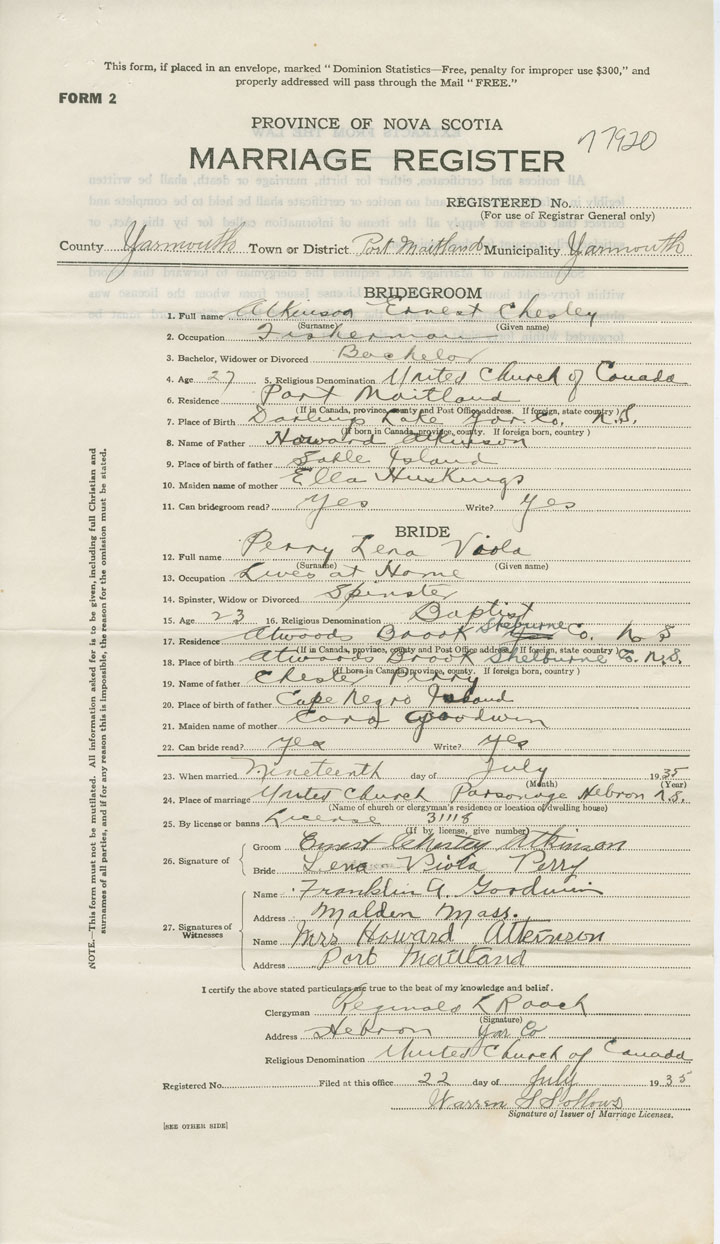 This form, if placed in an envelope, marked "Dominion Statistics—Free, penalty for improper use $300," and
properly addressed will pass through the Mail "FREE."
FORM 2
PROVINCE OF NOVA SCOTIA
77920
MARRIAGE REGISTER
REGISTERED No.
(For use of Registrar General only)
County Yarmouth Town or District Port Maitland Municipality Yarmouth
BRIDEGROOM
1. Full name Atkinson Ernest Chesley
(Surname) (Given name)
2. Occupation Fisherman
3. Bachelor, Widower or Divorced Bachelor
4. Age 27 5. Religious Denomination United Church of Canada
6. Residence Port Maitland
(If in Canada, province, county and Post Office address. If foreign, state country)
7. Place of Birth Darlings Lake Yar. Co. N.S.
(If born in Canada, province, county. If foreign born, country)
8. Name of Father Howard Atkinson
9. Place of birth of father Sable Island
10. Maiden name of mother Ella Huskings
11. Can bridegroom read? Yes Write? Yes
BRIDE
12. Full name Perry Lena Viola
(Surname) (Given name)
13. Occupation Lives at Home
14. Spinster, Widow or Divorced Spinster
15. Age 23 16. Religious Denomination Baptist
17. Residence Atwoods Brook Shelburne Co. N S
(If in Canada, province, county and Post Office address. If foreign, state country)
18. Place of birth Atwoods Brook Shelburne Co. N.S.
(If born in Canada, province, county. If foreign born, country)
19. Name of father Chester Perry
20. Place of birth of father Cape Negro Island
21. Maiden name of mother Cora Goodwin
22. Can bride read? yes Write? yes
23. When married Nineteenth day of July 1935
(Month) (Year)
24. Place of marriage United Church Parsonage Hebron N.S.
(Name of church or clergyman's residence or location of dwelling house)
25. By license or banns License 31118
(If by license, give number)
26. Signature of
Groom Ernest Chesley Atkinson
Bride Lena Viola Perry
27. Signatures of Witnesses
Name Franklin A. Goodwin
Address Malden Mass.
Name Mrs Howard Atkinson
Address Port Maitland
NOTE.—This form must not be mutilated. All information asked for is to be given, including full Christian and
surnames of all parties, and if for any reason this is impossible, the reason for the omission must be stated.
I certify the above stated particulars are true to the best of my knowledge and belief.
Clergyman Reginald K Roach
(Signature)
Address Hebron Yar Co
Religious Denomination United Church of Canada
Registered No. Filed at this office 22 day of July 1935
Warren
Signature of Issuer of Marriage Licenses.
[SEE OTHER SIDE]